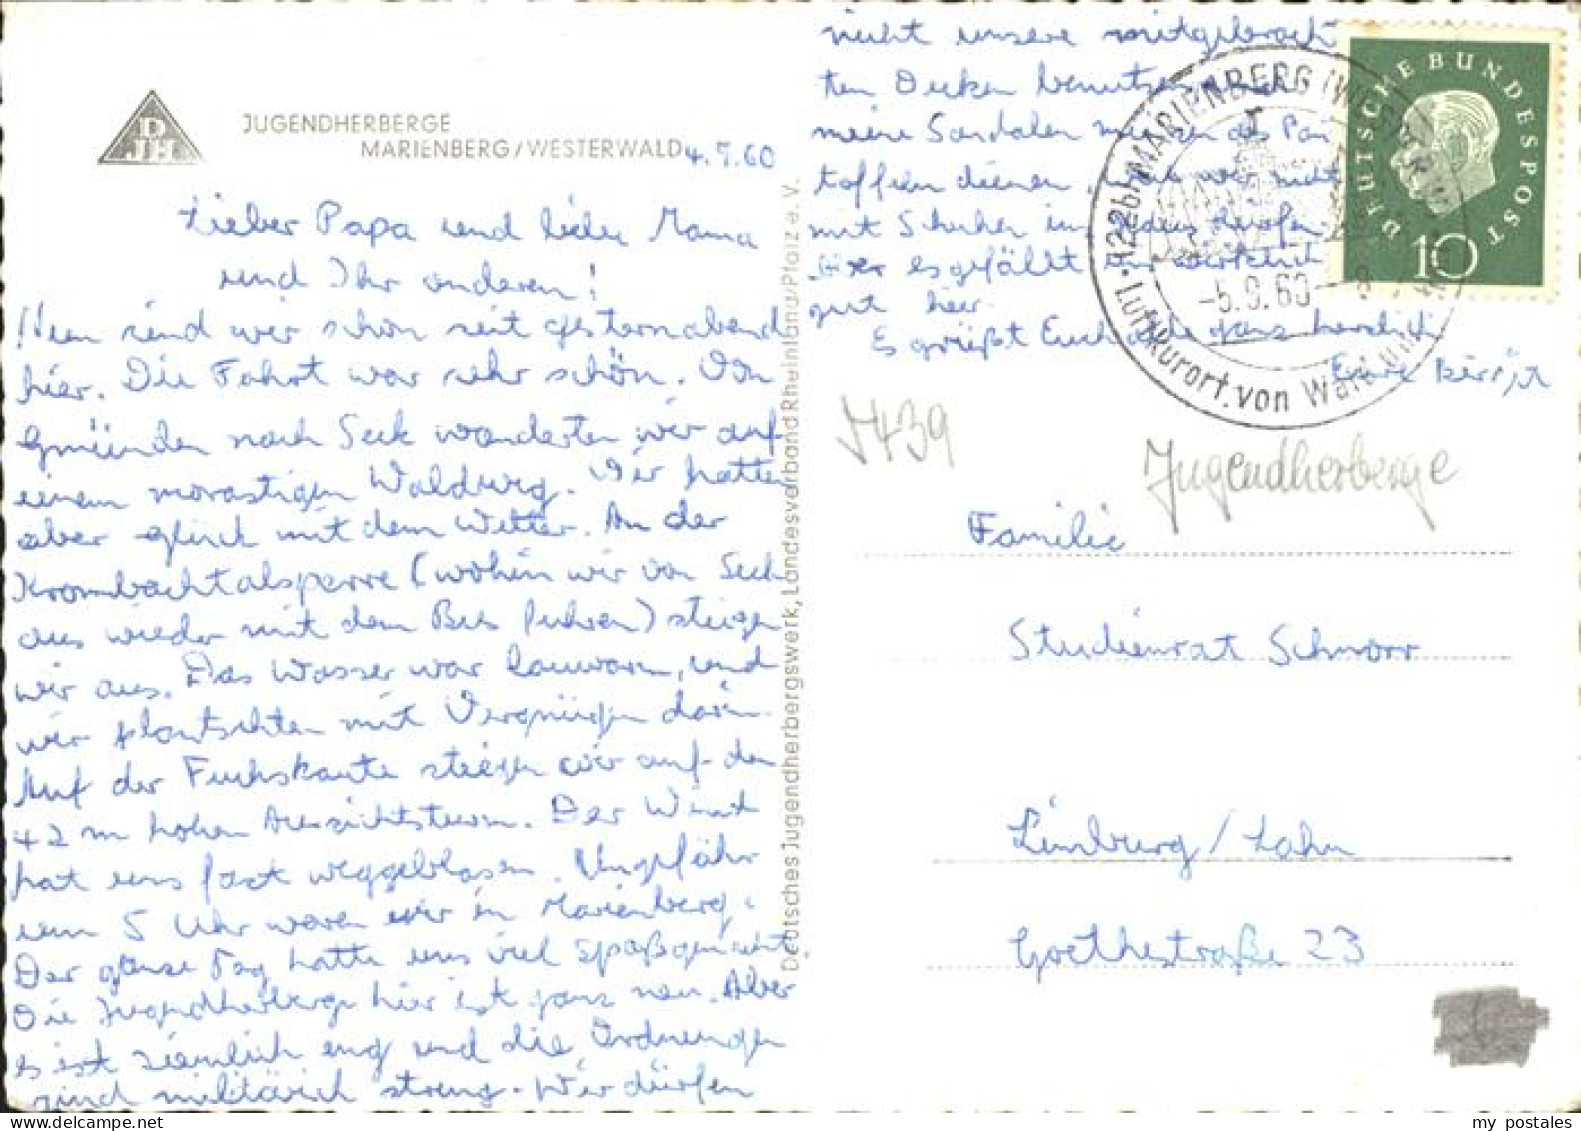 DJH
JUGENDHERBERGE
MARIENBERG/WESTERWALD
4.9.60
Lieber Papa und liebe Mama
und Ihr anderen!
Nun sind wir schon seit gesternabend
hier. Die Fahrt war sehr schön. Von
Gmünden nach Seck wanderten wir auf
einem morastigen Waldweg. Wir hatten
aber glück mit dem Wetter. An der
Krombachtalsperre (wohin wir von Seck
aus wieder mit dem Bus fuhren) steigen
wir aus. Das Wasser war lauwarm, und
wir plantschten mit Vergnügen darin.
Auf der Fuchskaute steigen wir auf den
42 m hohen Aussichtsturm. Der Wind
hat uns fast weggeblasen. Ungefähr
um 5 Uhr waren wir in Marienberg.
Der ganze Tag hatte uns viel Spaß gemacht
Die Jugendherberge hier ist ganz neu. Aber
es ist ziemlich eng und die Ordnungen
sind militärisch streng. Wir dürfen
nicht unsere mitgebrach
ten Decken benutzen, auch
meine Sandalen müssen als Pan
toffeln dienen, weil wir nicht
mit Schuhen in laufen.
Aber es gefällt mir wirklich
gut hier.
Es grüßt Euch alle ganz herzlich
Eure Birgit
DEUTSCHE BUNDESPOST
10
MARIENBERG (WESTERW
Luftkurort von Wald um
-5.9.60--8
5439
Jugendherberge
Familie
Studienrat Schnorr
Limburg/Lahn
Goethestraße 23
Deutsches Jugendherbergswerk, Landesverband Rheinland/Pfalz e. V.
my postales